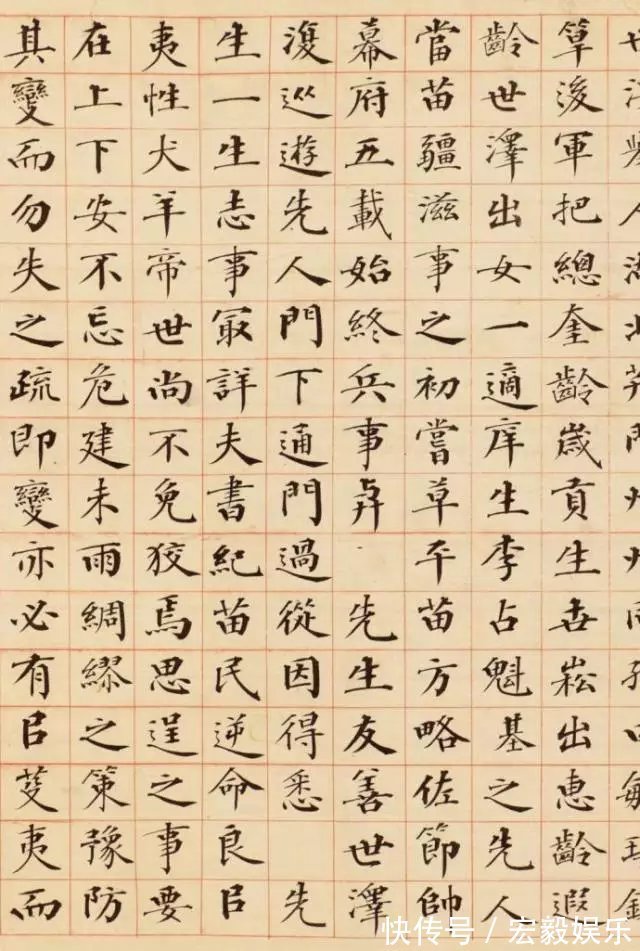 筸後軍把總奎齡歲貢生世崧出惠齡遐
齡世澤出女一適庠生李占魁基之先人
當苗疆滋事之初嘗草平苗方略佐節帥
幕府五載始終兵事 先生友善世澤
復從遊先人門下通門過從因得悉 先
生一生志事最詳夫書紀苗民逆命良㠯
夷性犬羊帝世尚不免狡焉思逞之事要
在上下安不忘危建未雨綢繆之策豫防
其變而勿失之疏即變亦必有㠯芟夷而
快传号 / 宏毅娱乐